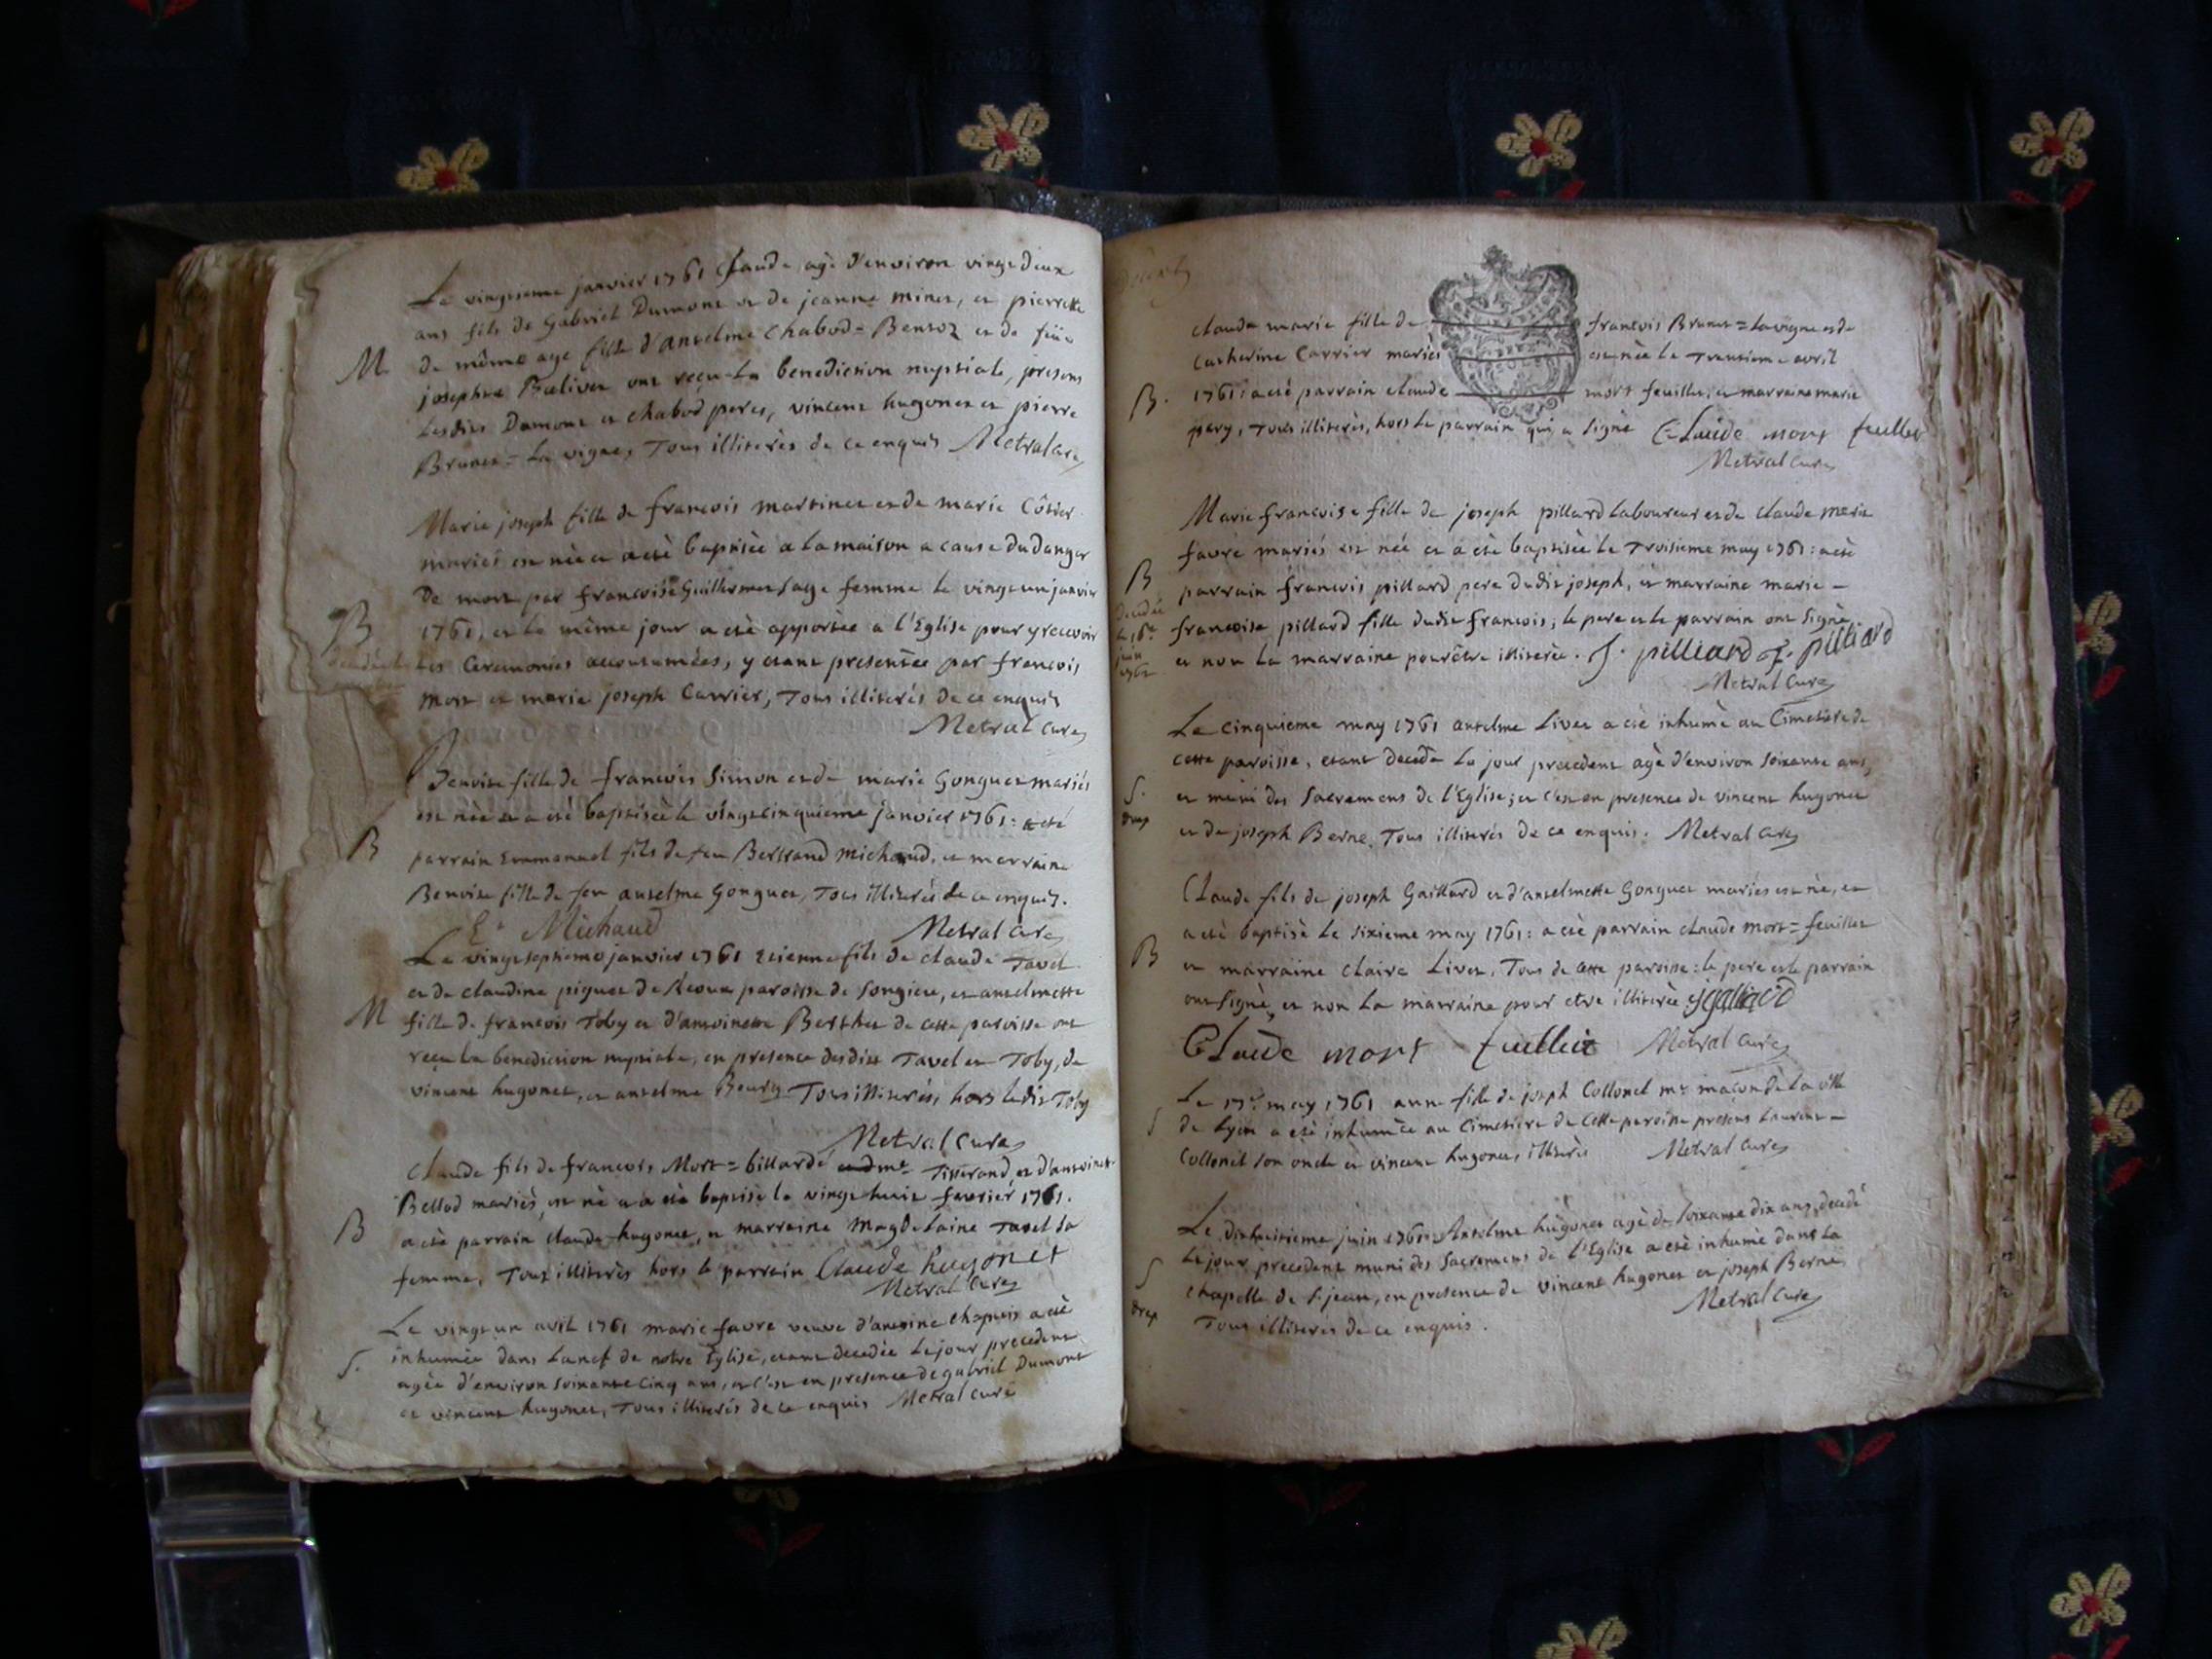 Le vingtieme janvier 1761 Claude agé d'environ vingt deux
ans fils de Gabriel Dumont et de jeanne minet, et pierrette
M de même age fille d'anselme Chabod= Bensoz et de füe
josephte Bolivet ont reçu la benediction nuptiale, presens
lesdits Dumont et chabod peres, vincent hugonet et pierre
Brunet= La vigne, Tous illiterés de ce enquis Metral curé
Marie joseph fille de françois martinet et de marie Côtier
mariés est née et a eté baptisée a la maison a cause du danger
De mort par françoise Guillermet sage femme le vingt un janvier
B 1761, et le même jour a eté apportée a l'Eglise pour y recevoir
les Ceremonies accoutumées, y etant presentée par françois
Mort et marie joseph Carrier, Tous illiterés de ce enquis
Metral curé
Benoite fille de françois Simon et de marie Gonguet mariés
est née et a eté baptisée le vingt cinquieme janvier 1761: a eté
B parrain Emmanuel fils de feu Bertrand michaud, et marraine
Benoite fille de feu anselme Gonguet, Tous illiterés de ce enquis.
E. Michaud Metral curé
Le vingt septieme janvier 1761 etienne fils de claude Tavel
et de claudine piguet de paroisse de Songieu, et anselmette
M fille de françois Toby et d'antoinette Berthet de cette paroisse ont
reçu la benediction nuptiale, en presence desdits Tavel et Toby, de
vincent hugonet, et anselme Bourg Tous illiterés, hors ledit Toby
Metral curé
Claude fils de françois Mort= billard me Tisserand, et d'antoinette
Bellod mariés, est né et a eté baptisé le vingt huit fevrier 1761.
B a eté parrain claude hugonet, et marraine Magdelaine Tavel sa
femme, Tous illiterés hors le parrain Claude hugonet
Metral curé
Le vingt un avril 1761 marie favre veuve d'antoine chapuis a eté
inhumée dans la nef de notre Eglise, etant decedée le jour precedent
S. agée d'environ soixante cinq ans, et c'est en presence de gabriel Dumont
et vincent hugonet, Tous illiterés de ce enquis Metral curé
claude marie fille de françois Brunet= La vigne et de
Catherine Carrier mariés est née le Trentieme avril
B. 1761: a eté parrain claude mort feuillet, et marraine marie
pery, Tous illiterés, hors le parrain qui a signé Claude mort feuillet
Metral curé
Marie françoise fille de joseph pillard Laboureur et de claude marie
favre mariés est née et a eté baptisée le Troisieme may 1761: a eté
B parrain françois pillard pere dudit joseph, et marraine marie-
decedée le 16e juin 1761
françoise pillard fille dudit françois; le pere et le parrain ont signé
et non la marraine pour être illiterée. J. pilliard f. pilliard
Metral Curé
Le cinquieme may 1761 anselme Livet a eté inhumé au Cimetiere de
cette paroisse, etant decedé le jour precedent agé d'environ soixante ans,
S. et muni des Sacremens de l'Eglise; et c'est en presence de vincent hugonet
et de joseph Berne, Tous illiterés de ce enquis. Metral curé
Claude fils de joseph Gaillard et d'anselmette Gonguet mariés est né, et
a eté baptisé le sixieme may 1761: a eté parrain claude mort= feuillet
B et marraine claire Livet, Tous de cette paroisse: le pere et le parrain
ont signé, et non la marraine pour etre illiterée
Claude mort feuillet Metral curé
Le 17e may 1761 anne fille de joseph Collonel me maçon de la ville
S de Lyon a eté inhumée au Cimetiere de cette paroisse presens Laurent-
Collonel son oncle et vincent hugonet, illiterés Metral curé
Le dixhuitieme juin 1761 Anselme hugonet agé de soixante dix ans, decedé
le jour precedent muni des Sacremens de l'Eglise a eté inhumé dans la
S chapelle de S. jean, en presence de vincent hugonet et joseph Berne
Tous illiterés de ce enquis. Metral curé